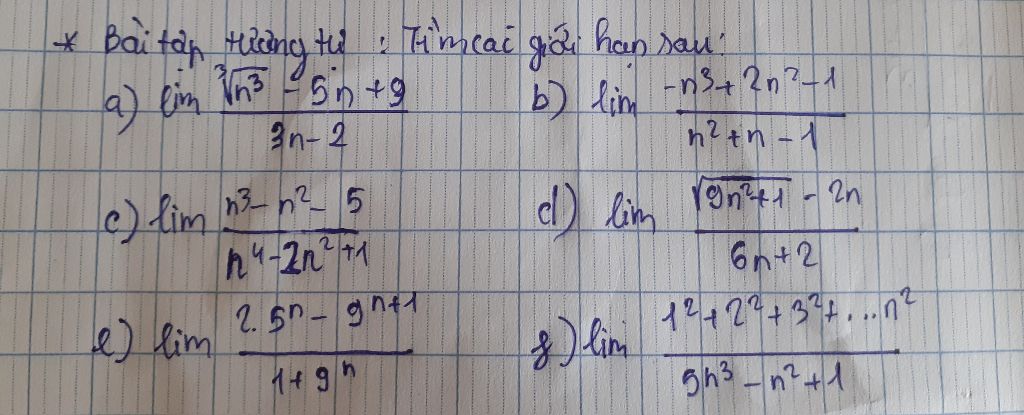 * Bài tập tương tự : Tìm các giới hạn sau:
a) lim (∛(n³) - 5n + 9)/(3n - 2) b) lim (-n³ + 2n² - 1)/(n² + n - 1)
c) lim (n³ - n² - 5)/(n⁴ - 2n² + 1) d) lim (√(9n² + 1) - 2n)/(6n + 2)
e) lim (2.5ⁿ - 9ⁿ⁺¹)/(1 + 9ⁿ) g) lim (1² + 2² + 3² + ... n²)/(5n³ - n² + 1)